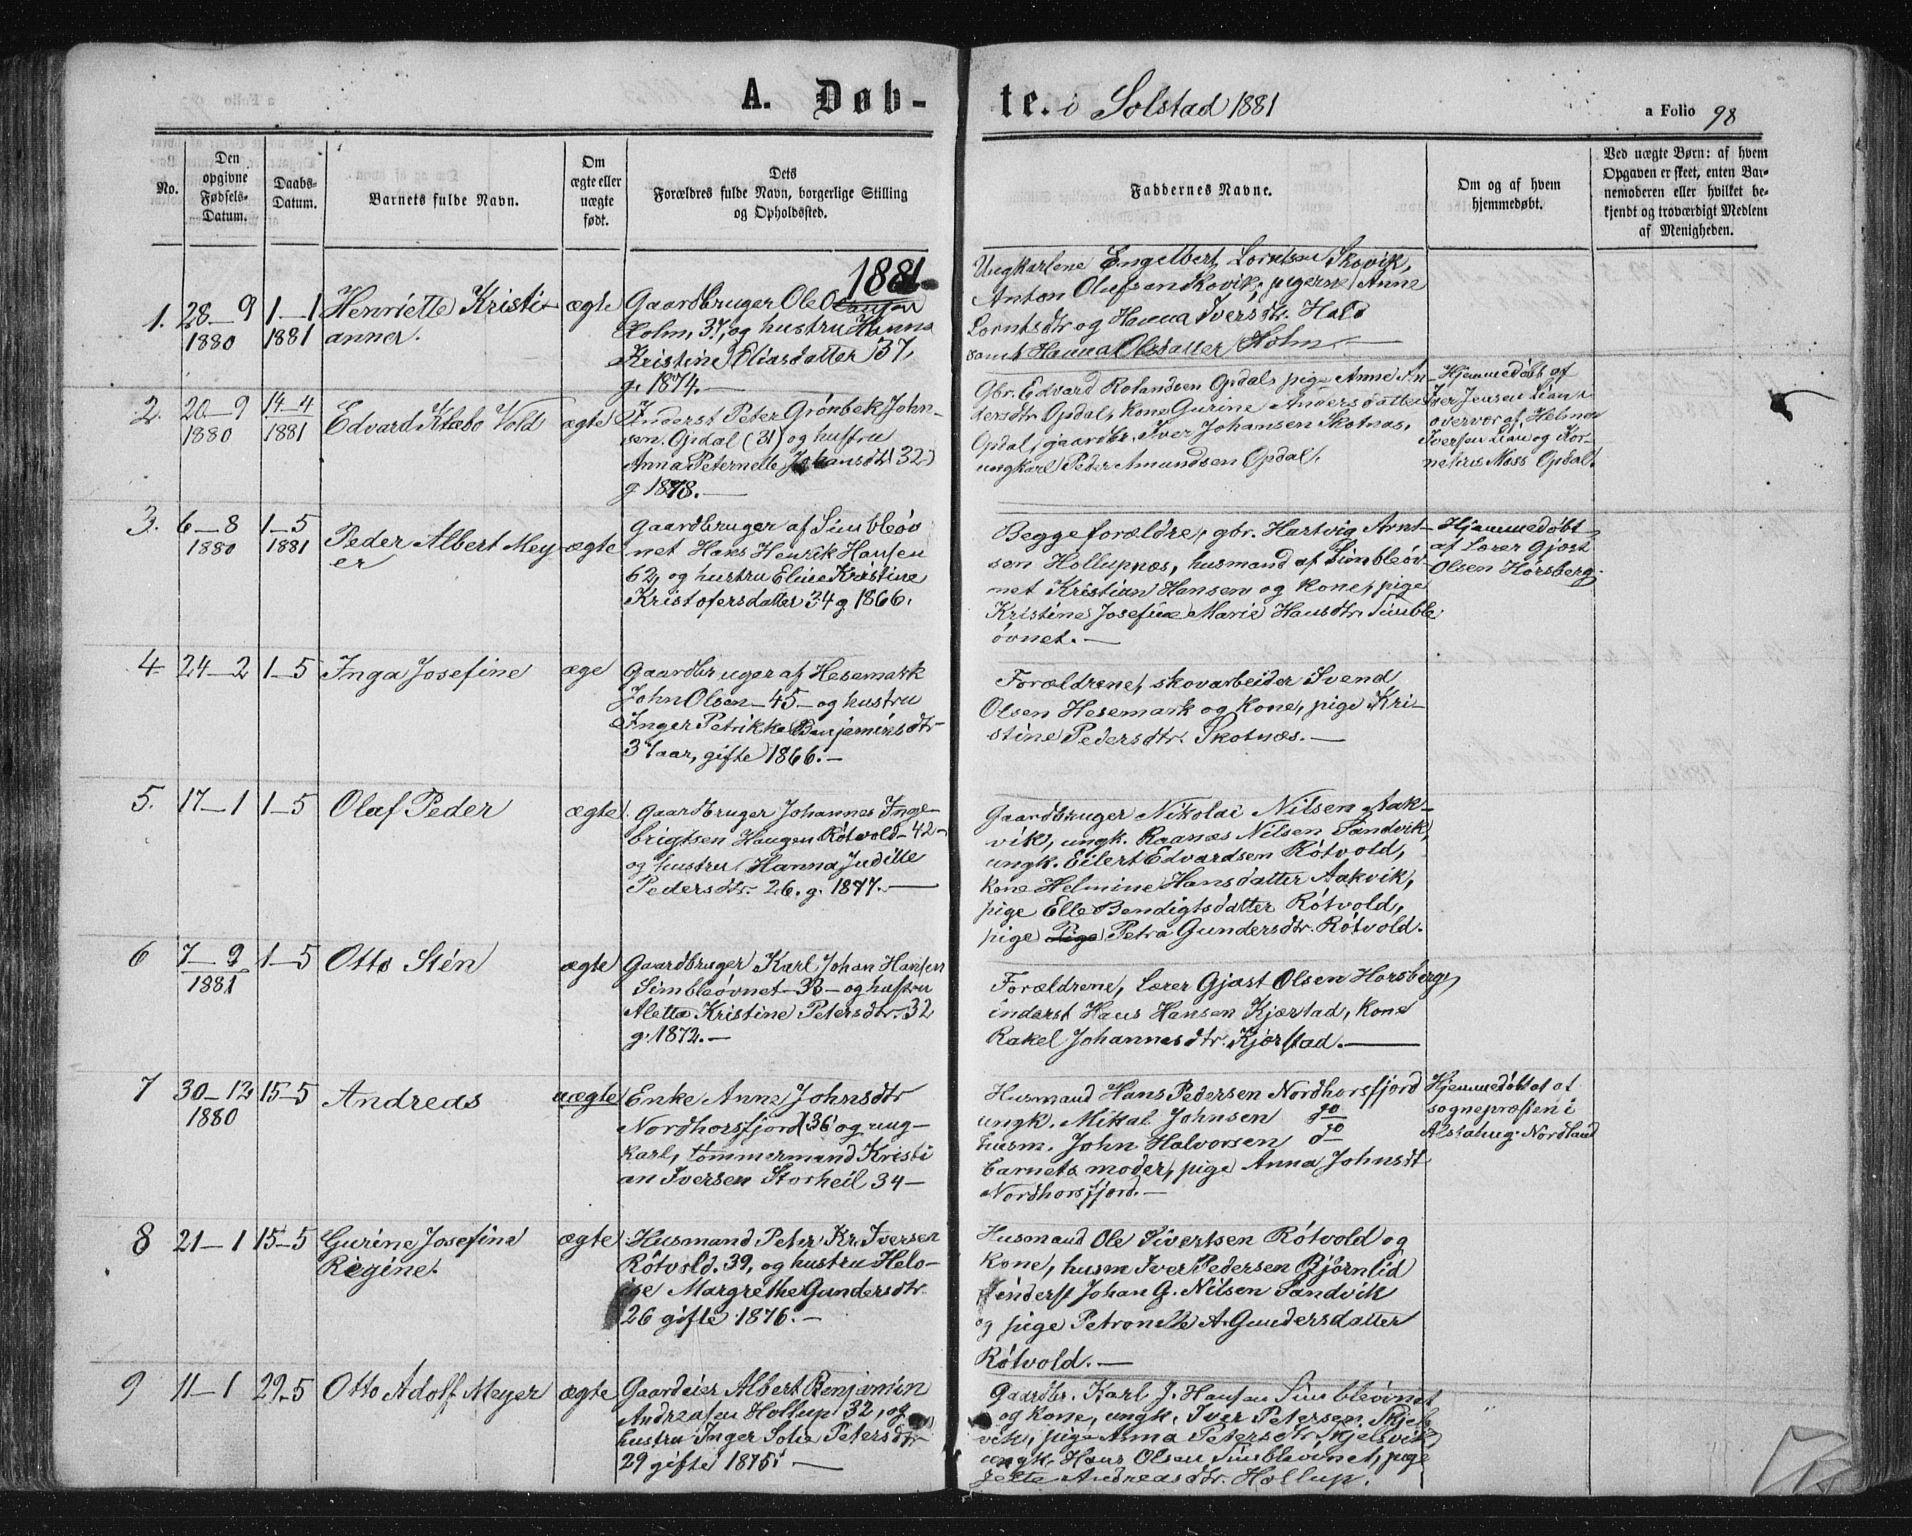 A. Døb- te. i Solstad 1881
a Folio 98
No.
Den opgivne Fødsels-Datum.
Daabs-Datum.
Barnets fulde Navn.
Om ægte eller uægte født.
Dets Forældres fulde Navn, borgerlige Stilling og Opholdssted.
Faddernes Navne.
Om og af hvem hjemmedøbt.
Ved uægte Børn: af hvem Opgaven er skeet, enten Barnemoderen eller hvilket bekjendt og troværdigt Medlem af Menigheden.
1881
1. 28–9 1880
1–1 1881
Henriette Kristi-
anner.
ægte
Gaardbruger Ole
Holm, 37, og hustru Hanna
Kristine Eliasdatter 37,
g. 1874.–
Ungkarlene Engelbert Lorntsen Skovik,
Anton Olufsen Skovik, pigerne Anne
Lorntsdtr og Hanna Iversdtr. Hald
samt Hanna Olsdatter Holm.–
2. 20–9 1880
14–4 1881
Edvard Klæbo Vold
ægte
Inderst Peter Grönbek John-
sen Opdal (31) og hustru
Anna Peternelle Johansdtr (32)
g 1878.–
Gbr. Edvard Rolandsen Opdal, pige Anne An-
dersdtr. Opdal, kone Gurine Andersdatter
Opdal, gaardbr. Iver Johansen Skotnæs,
ungkarl Peder Amundsen Opdal.
Hjemmedøbt af
Iver Jensen Lian,
overvær af Helmer
Iversen Lian og Kor-
nelius Moss Opdal.
3. 6–8 1880
1–5 1881
Peder Albert Mey-
er
ægte
Gaardbruger af Simbleöv
net Hans Henrik Hansen
62, og hustru Eline Kristine
Kristofersdatter 34 g 1866.
Begge forældre, gbr. Hartvig Arnt-
sen Hollupnæs, husmand af Simbleöv-
net Kristian Hansen og kone, pige
Kristine Josefine Marie Hansdtr. Simble
övnet.–
Hjemmedøbt
af Lærer Gjøst
Olsen Horsberg.
4 24–2 1–5
Inga Josefine
æge
Gaardbruger af Hesemark
John Olsen – 45 – og hustru
Inger Petrikke Benjaminsdtr
37 aar, gifte 1866.–
Forældrene, skovarbeider Svend
Olsen Hesemark og kone, pige Kri-
stine Pedersdtr. Skotnæs.–
5. 17–1 1–5
Olaf Peder
ægte
Gaardbruger Johannes Inge-
brigtsen Haugen Rötvold – 42 –
og hustru Hanna Juditte
Pedersdtr. 26. g. 1877.–
Gaardbruger Nikolai Nilsen Aak-
vik, ungk. Raanæs Nilsen Sandvik,
ungk. Eilert Edvardsen Rötvold,
kone Helmine Hansdatter Aakvik,
pige Elle Bendigtsdatter Rötvold,
pige Pige Petra Gundersdtr. Rötvold.
6 7–2 1881
1–5
Otto Stén
ægte
Gaardbruger Karl Johan Hansen
Simbleövnet – 33 – og hustru
Aletta Kristine Petersdtr. 32
g. 1872.–
Forældrene, Lærer Gjøst Olsen Horsberg,
inderst Hans Hansen Kjærstad, kone
Rakel Johannesdtr. Kjørstad.–
7 30–12 1880
15–5
Andreas
uægte
Enke Anne Johnsdtr
Nordhorsfjord 36 og ung-
karl, tömmermand Kristi
an Iversen Storheil 34–
Husmand Hans Pedersen Nordhorsfjord
ungk. Mikal Johnsen do
husm. John Halvorsen do
barnets moder, pige Anna Johnsdt
Nordhorsfjord.–
Hjemmedöbt af
sognepræsten i
Alstahug. Nordland
8 21–1 15–5
Gurine Josefine
Rigine.
ægte
Husmand Peter Kr. Iversen
Rötvold. 39, og hustru Helo-
ise Margrethe Gundersdtr
26 gifte 1876.–
Husmand Ole Sivertsen Rötvold og
kone, husm Iver Pedersen Björnlid
inderst Johan G. Nilsen Sandvik
og pige Petronelle A. Gundersdatter
Rötvold.–
9 11–1 29–5
Otto Adolf Meyer
ægte
Gaardeier Albert Benjamin
Andreasen Hollup 32, og
hustru Inger Sofie Petersdtr
29 gifte 1875.–
Gaardbr. Karl J. Hansen Simbleövnet
og kone, ungk. Iver Petersen Skjels-
vik, pige Anna Petersdtr. Skjelsvik,
ungk. Hans Olsen Simbleövnet, pige
Jette Andreasdtr. Hollup.